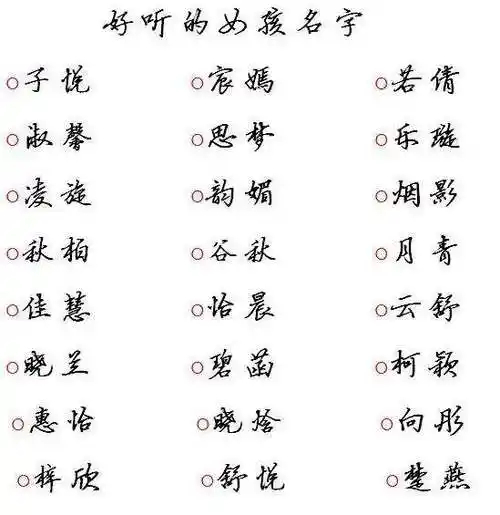 好听的女孩名字
○子悦 ○宸嫣 ○若倩
○淑馨 ○思梦 ○乐璇
○凌旋 ○韵媚 ○烟影
○秋柏 ○谷秋 ○月青
○佳慧 ○怡晨 ○云舒
○晓兰 ○碧菡 ○柯颖
○惠怡 ○晓烩 ○向彤
○梓欣 ○舒悦 ○楚燕